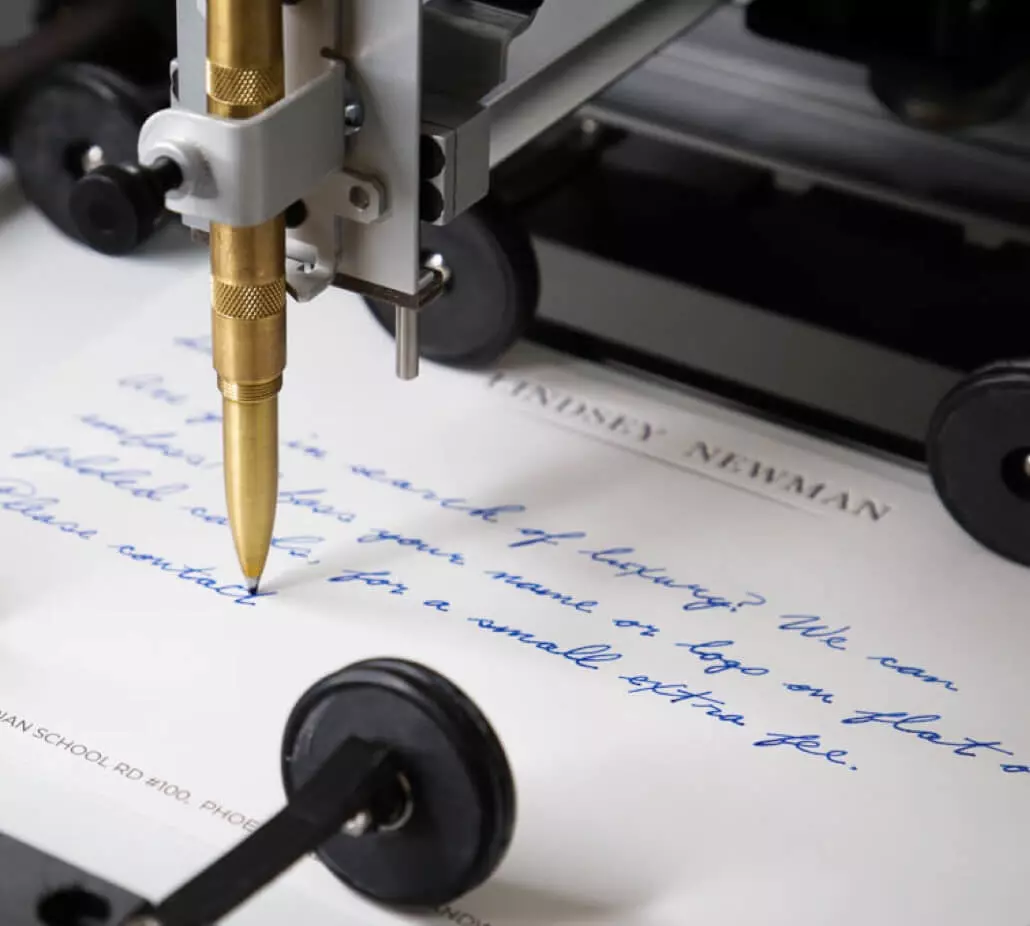 LINDSEY NEWMAN
Are in search of luxury? We can
emboss your name or logo on flat
folded for a small extra fee.
Please contact
SCHOOL RD #100, PHOE